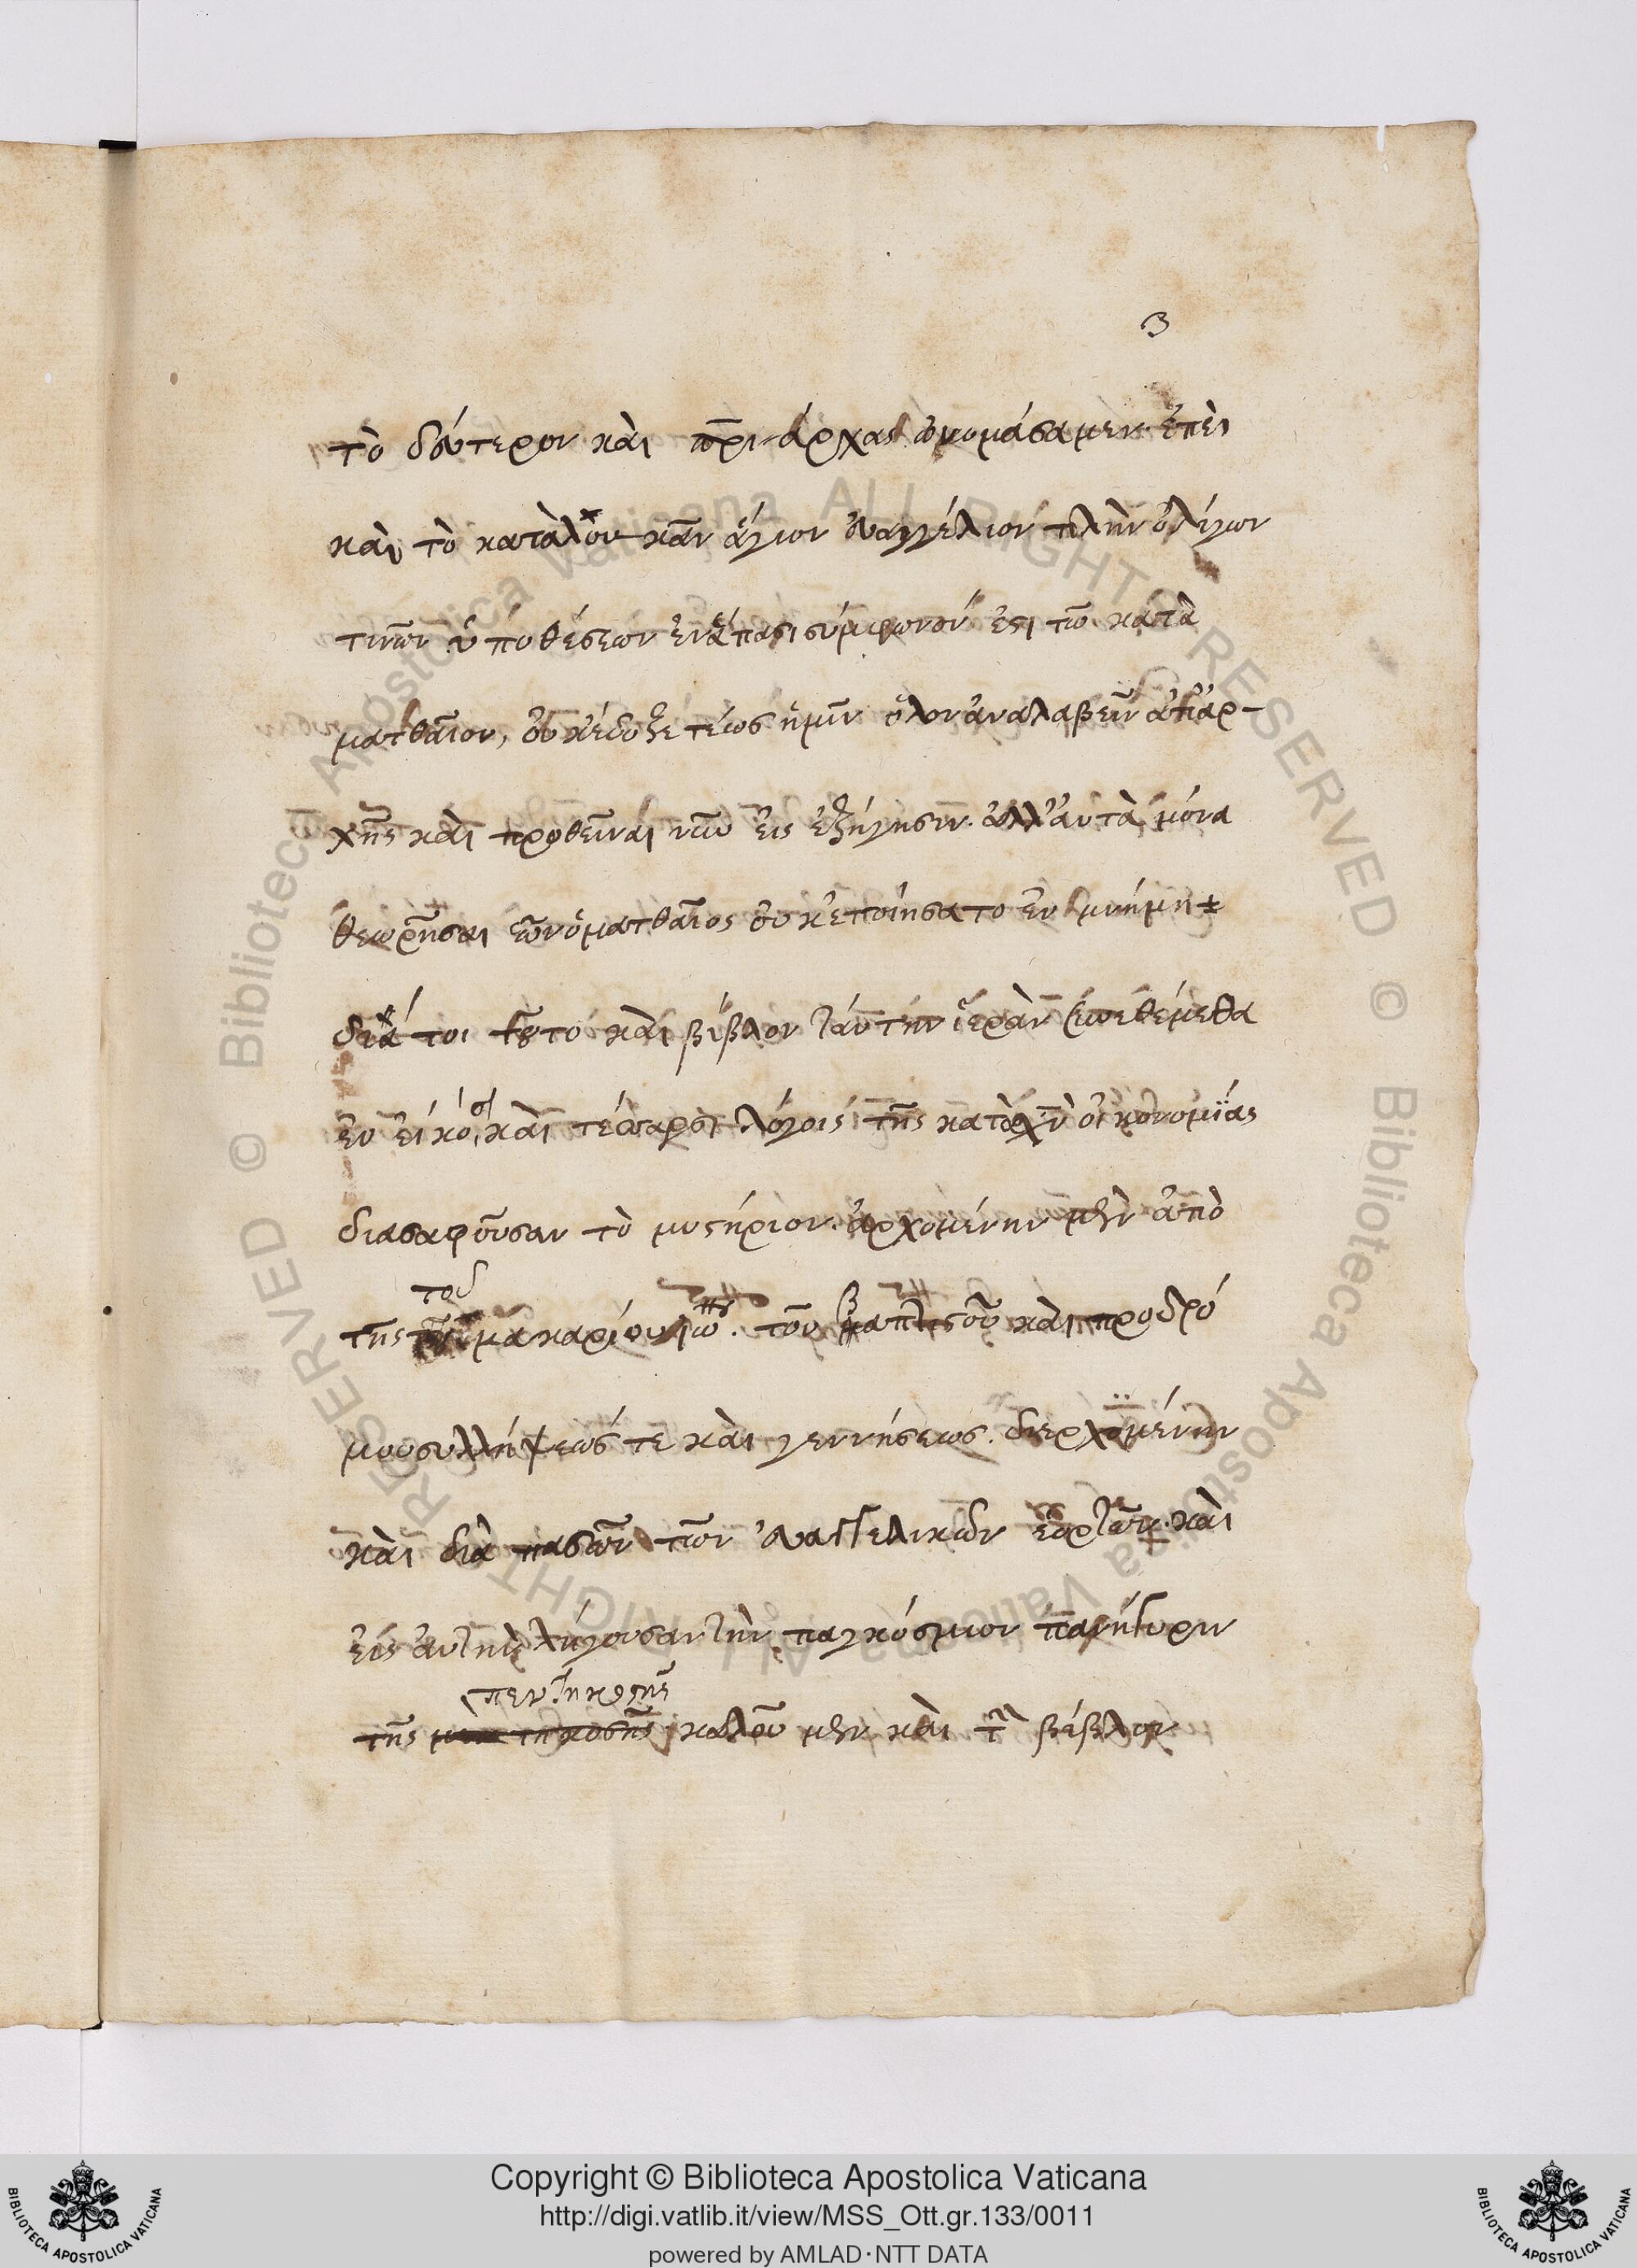 3
τὸ δεύτερον καὶ περι άρχας ὠνομάσαμεν. ἐπεὶ
καὶ τὸ κατὰ λουκᾶν ἅγιον ἐυαγγέλιον πλὴν ὀλίγων
τινῶν ὑποθέσεων ἐν ἅπασι σύμφωνόν ἐστι τῶ κατὰ
ματθαῖον, ὀυκ ἔδοξε τέως ἡμῖν ὅλον ἀναλαβεῖν ἀπ ἀρ-
χῆς καὶ προθεῖναι νῦν ἐις ἐξήγησιν. ἀλλ ἀυτὰ μόνα
θεωρῆσαι ὧν ὁ ματθαῖος ὀυκ ἐποιήσατο ἐν μνήμη
διά τοι τοῦτο καὶ βίβλον ταύτην ἱερὰν
ἐν ἐίκοσι καὶ τέσσαρσι λόγοις τῆς κατὰ χν ὀικονομΐας
διασαφοῦσαν τὸ μυστήριον. ἀρχομένην μὲν ἀπὸ
τοῦ
τῆς μακαρίου ιω. τοῦ βαπτιστοῦ καὶ προδρό
μου συλλήψεώς τε καὶ γεννήσεως. διερχομένην
καὶ διὰ πασῶν τῶν ἐυαγγελικῶν ἑορτῶν. καὶ
ἐις ἀυτὴν λήγουσαν τὴν παγκόσμιον πανήγυριν
πεντηκοστῆς
τῆς καλοῦμεν καὶ τὴν βίβλον
Copyright © Biblioteca Apostolica Vaticana
http://digi.vatlib.it/view/MSS_Ott.gr.133/0011
powered by AMLAD·NTT DATA
BIBLIOTECA APOSTOLICA VATICANA
BIBLIOTECA APOSTOLICA VATICANA